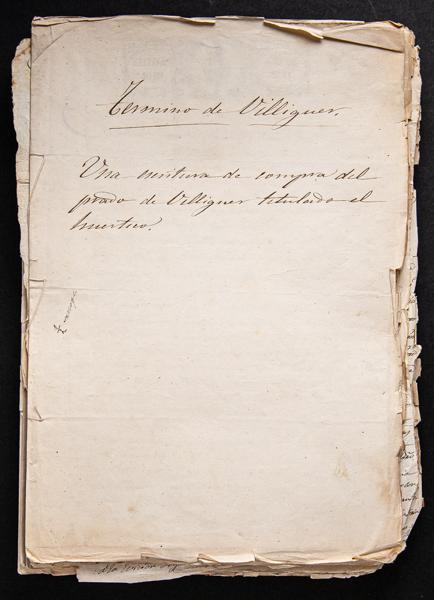 Termino de Villiguer.
Una escritura de compra del
prado de Villiguer titulado el
huertico.